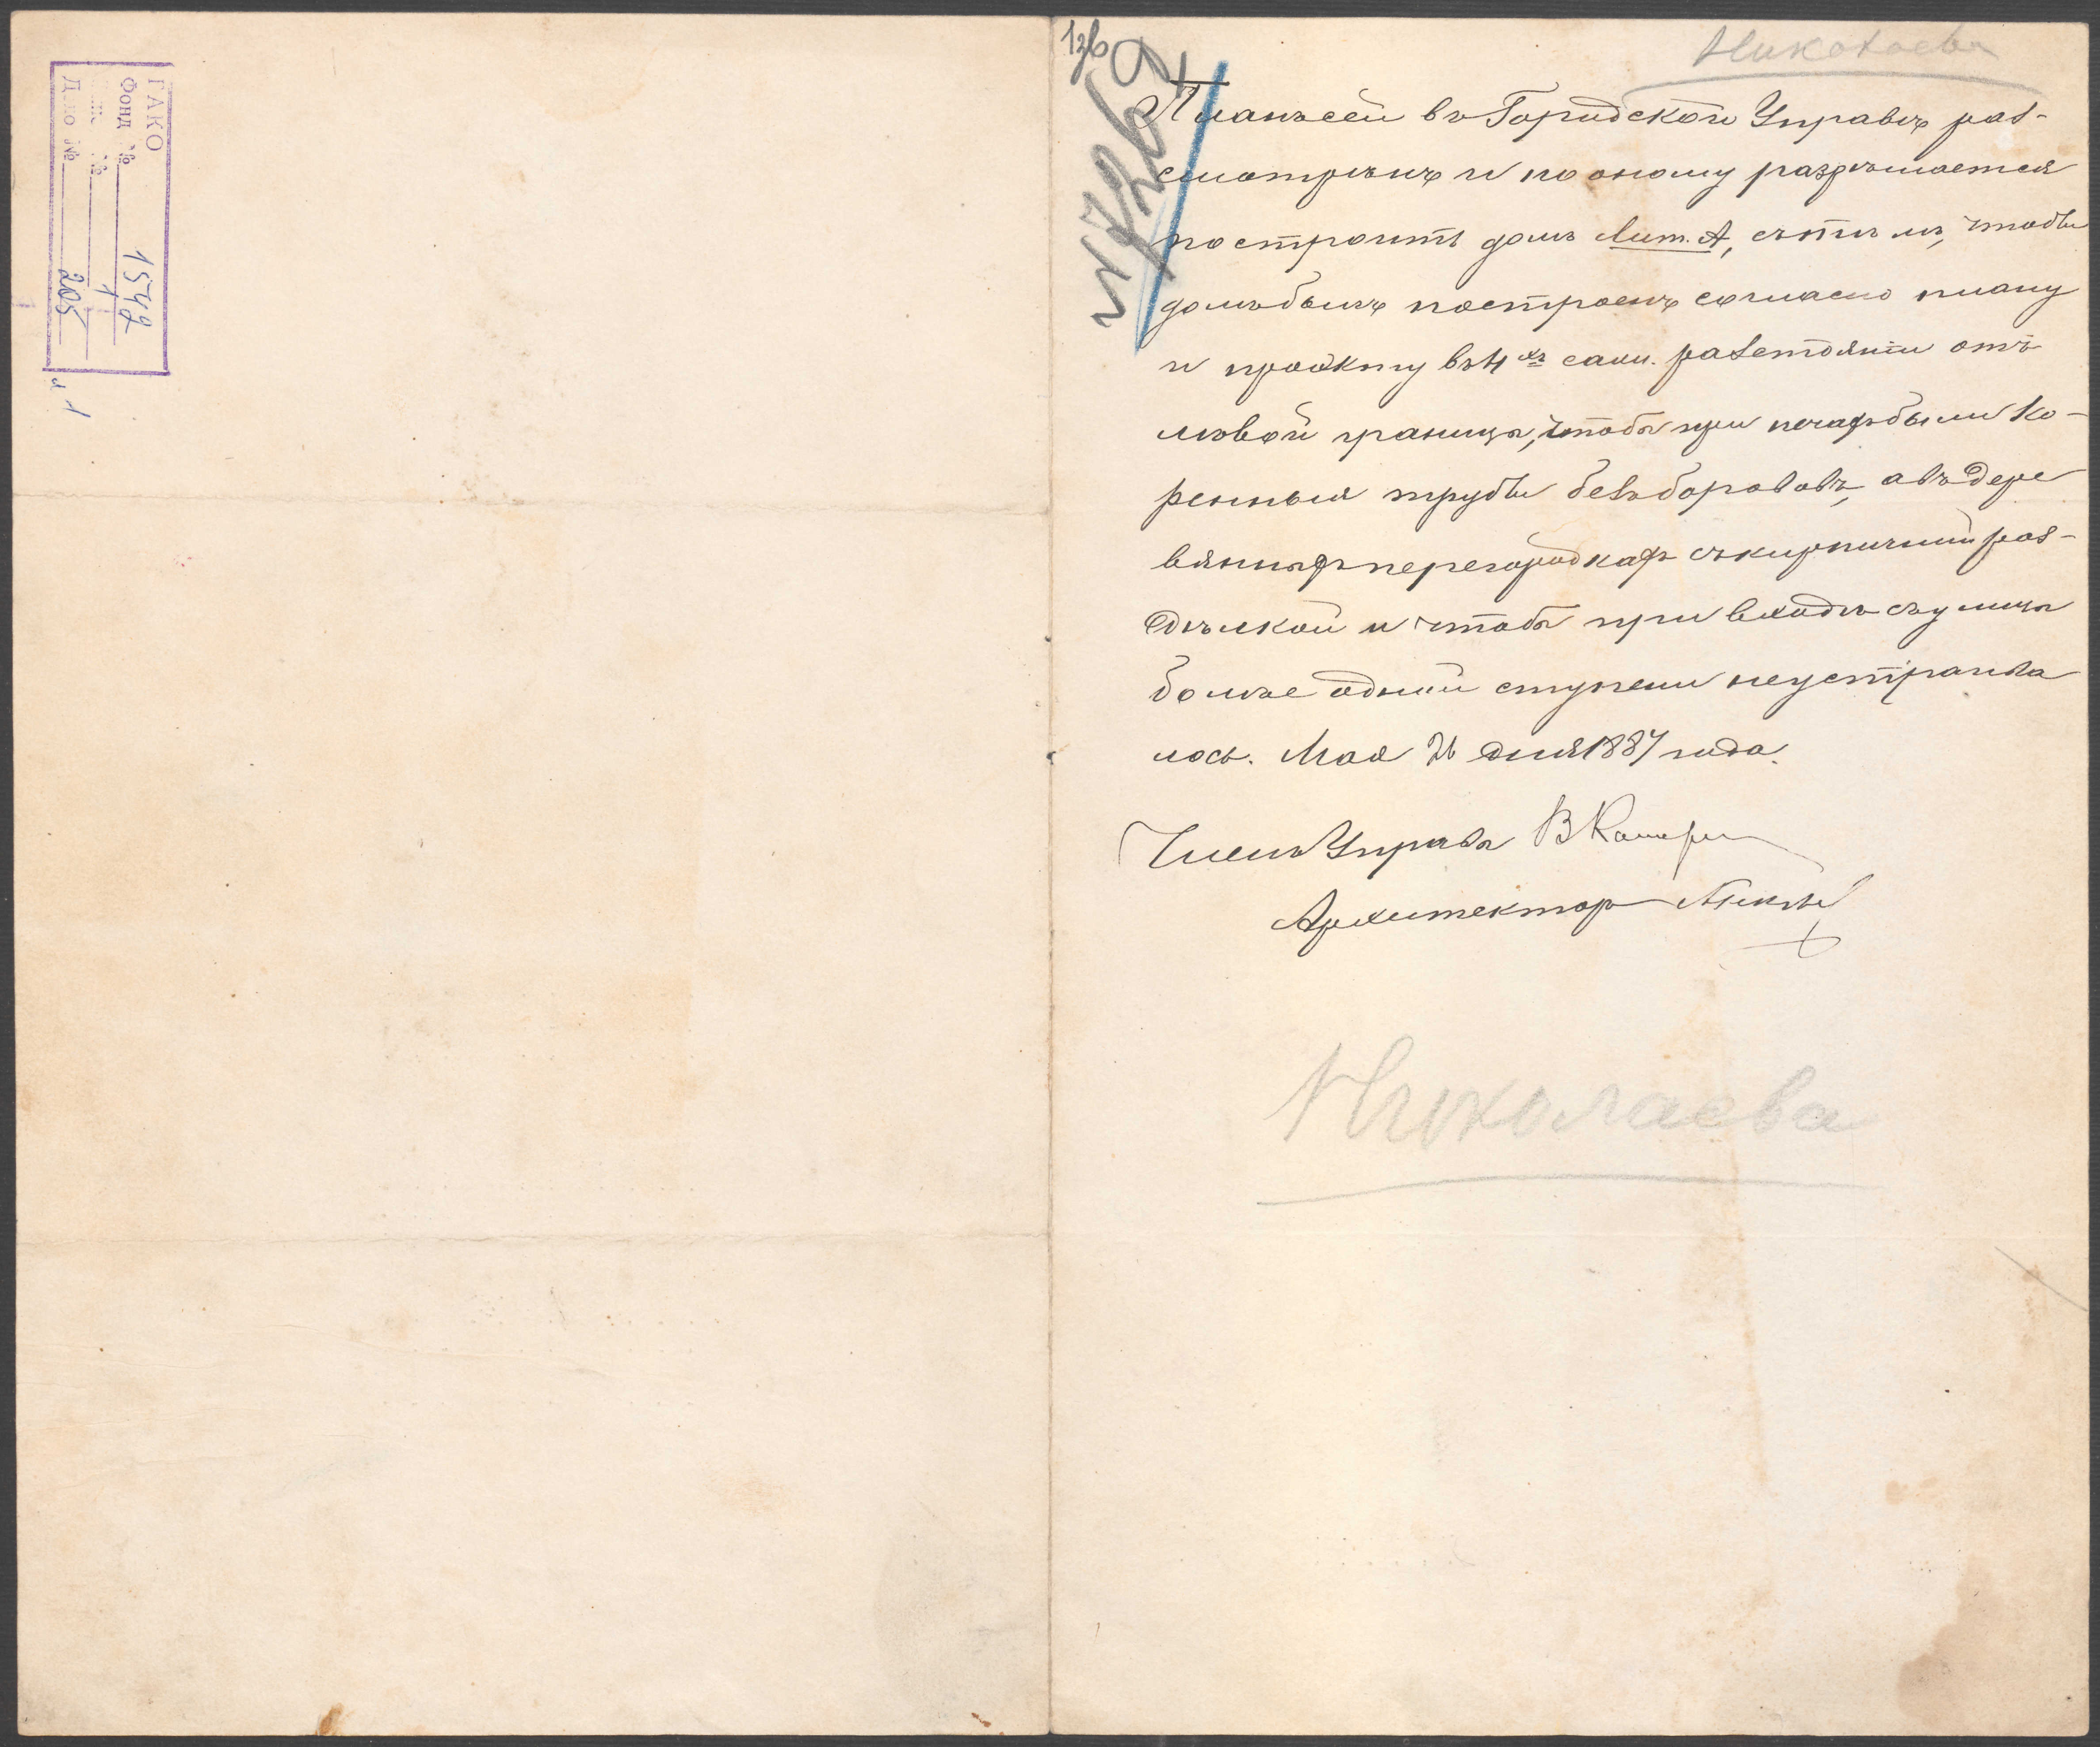 ГАКО
Фонд № 1542
№ 1
Дело № 205
л 1
136
Николаева
№ 7269
Планъ сей въ Городской Управѣ раз-
смотрѣнъ и по оному разрѣшается
построить домъ Лит. А, съ тѣмъ, чтобы
домъ былъ построенъ согласно плану
и проэкту въ 4хъ саж. разстояніи отъ
лѣвой границы, чтобы при печахъ были ко-
ренныя трубы безъ борововъ, а въ дере
вянныхъ перегородкахъ съ кирпичной раз-
дѣлкой и чтобы при входѣ съ улицы
болѣе одной ступени не устраива
лось. Мая 26 дня 1887 года.
Членъ Управы В
Архитектор
Николаева